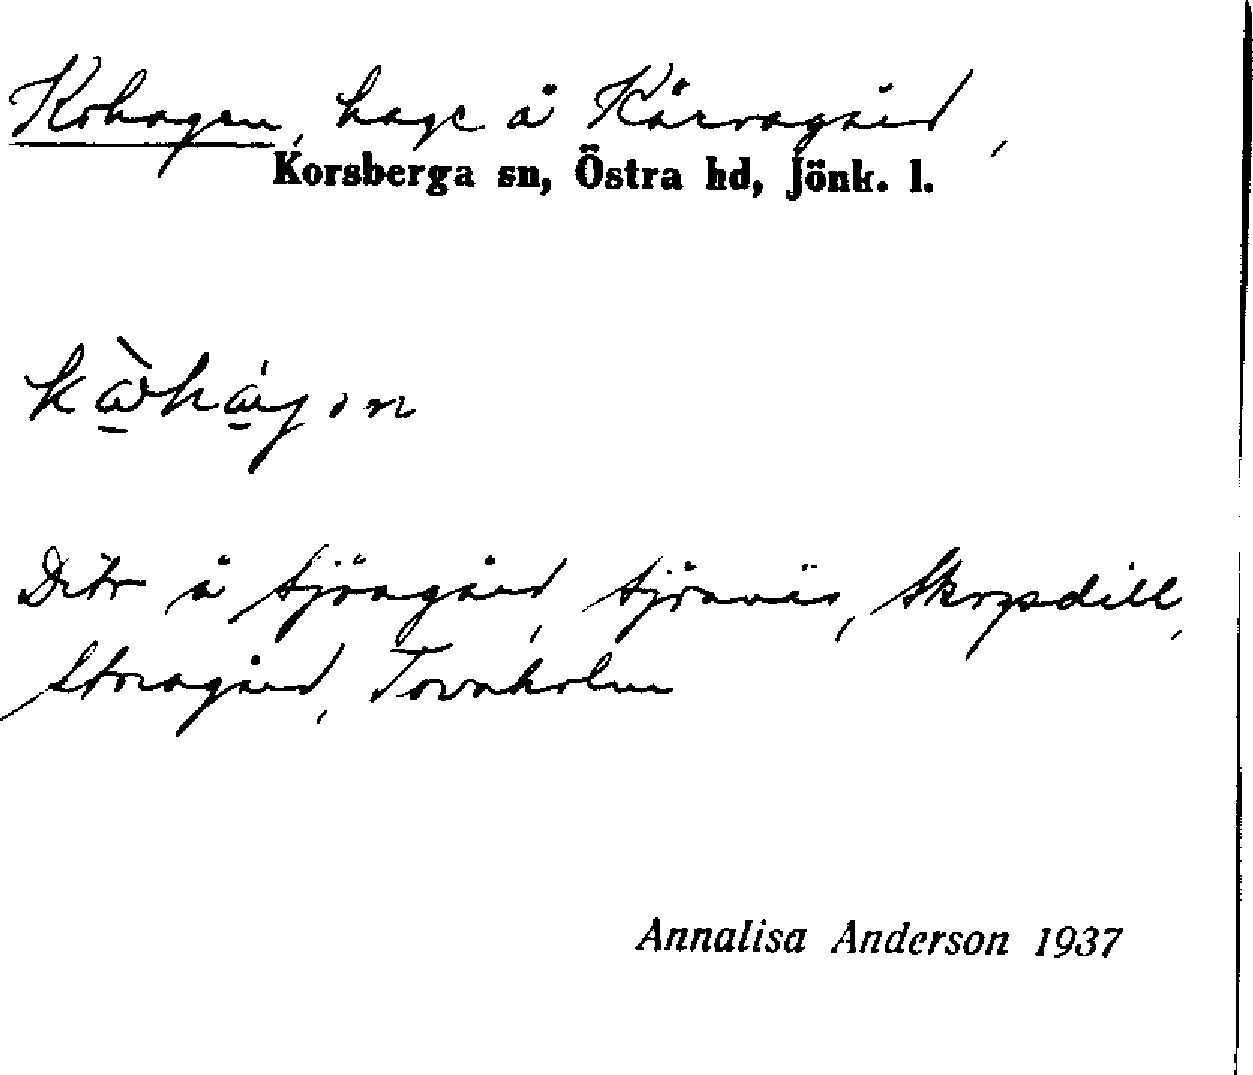 Kohagen, hage å Kärragård,
Korsberga sn, Östra hd, Jönk. l.
Dito å Sjöagård, Sjöanäs, Skogsdill,
Storagård, Tovaholm
Annalisa Anderson 1937